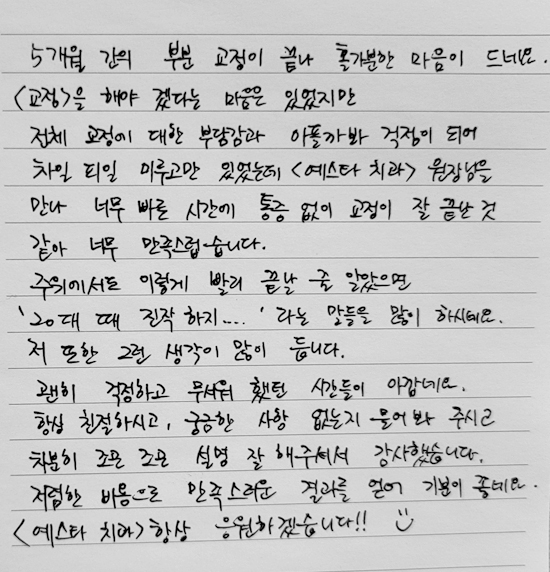 5개월 간의 부분 교정이 끝나 홀가분한 마음이 드네요.
<교정>을 해야 겠다는 마음은 있었지만
전체 교정에 대한 부담감과 아플까봐 걱정이 되어
차일 피일 미루고만 있었는데 <예스타 치과> 원장님을
만나 너무 빠른 시간에 통증 없이 교정이 잘 끝난 것
같아 너무 만족스럽습니다.
주위에서도 이렇게 빨리 끝날 줄 알았으면
'20대 때 진작 하지....' 라는 말들을 많이 하시네요.
저 또한 그런 생각이 많이 듭니다.
괜히 걱정하고 무서워 했던 시간들이 아깝네요.
항상 친절하시고, 궁금한 사항 없는지 물어봐 주시고
차분히 조모 조모 설명 잘 해주셔서 감사했습니다.
저렴한 비용으로 만족스러운 결과를 얻어 기분이 좋네요.
<예스타 치과> 항상 응원하겠습니다!!